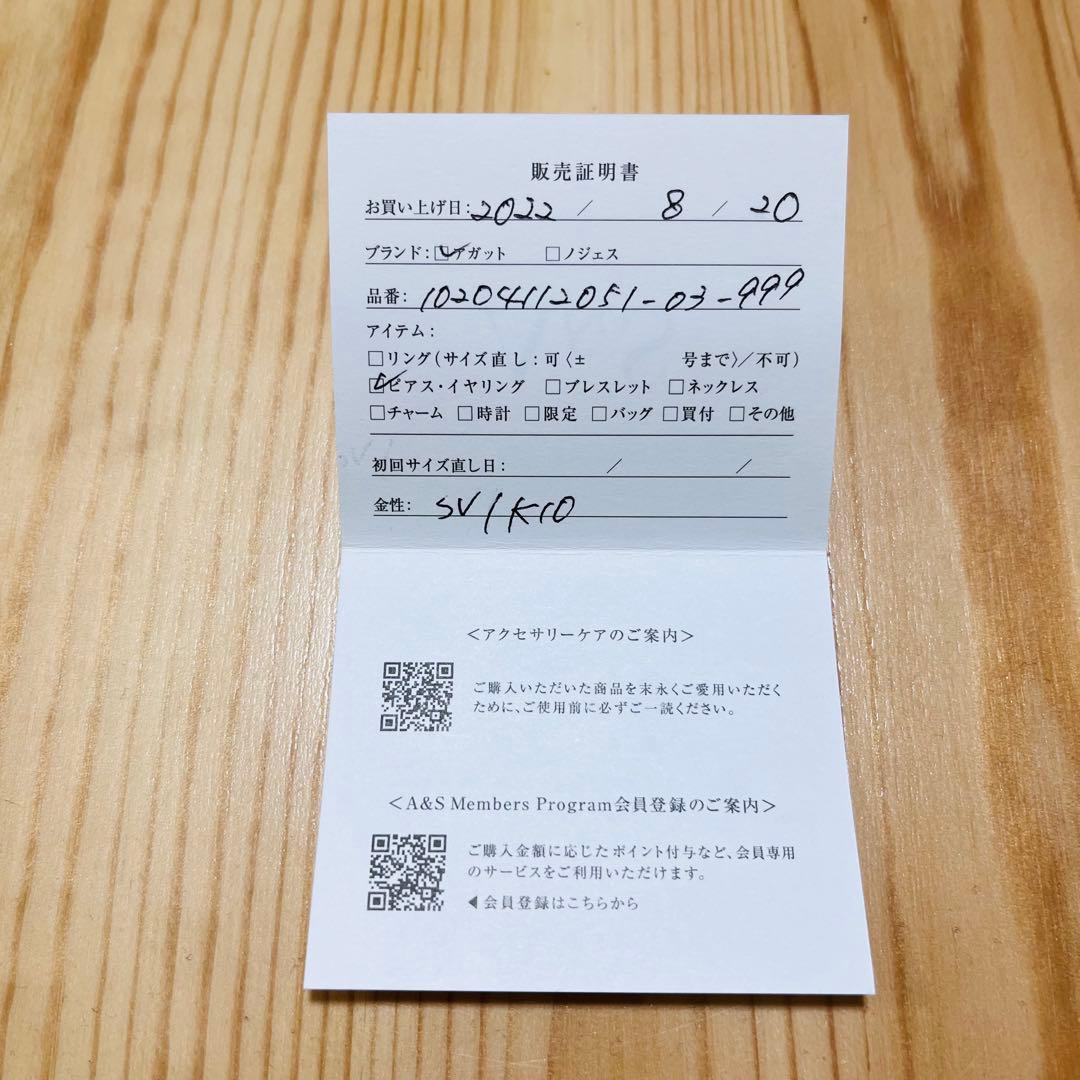 販売証明書
お買い上げ日: 2022 / 8 / 20
ブランド: ☑アガット □ノジェス
品番: 10204112051-03-999
アイテム:
□リング(サイズ直し: 可〈± 号まで〉/不可)
☑ピアス・イヤリング □ブレスレット □ネックレス
□チャーム □時計 □限定 □バッグ □買付 □その他
初回サイズ直し日: / /
金性: SV/K10
<アクセサリーケアのご案内>
ご購入いただいた商品を末永くご愛用いただく
ために、ご使用前に必ずご一読ください。
<A&S Members Program会員登録のご案内>
ご購入金額に応じたポイント付与など、会員専用
のサービスをご利用いただけます。
◀会員登録はこちらから